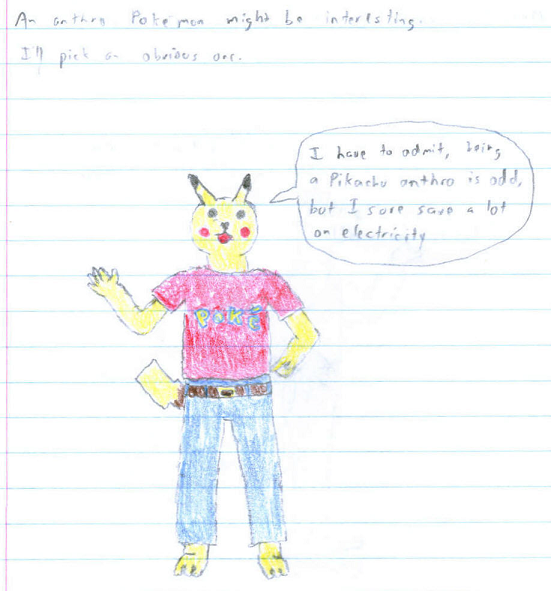 An anthro Pokémon might be interesting.
I'll pick an obvious one.
I have to admit, being
a Pikachu anthro is odd,
but I sure save a lot
on electricity
POKÉ